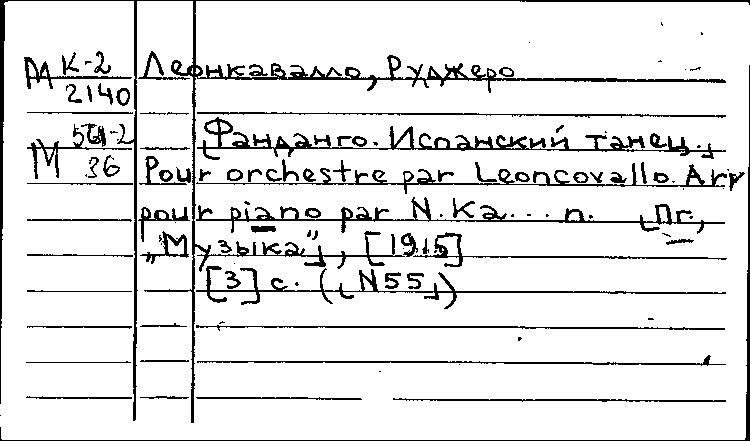 М К-2 Леонкавалло, Руджеро
2140
М 561-2 [Фанданго. Испанский танец.]
36 Pour orchestre par Leoncovallo. Arr
pour piano par N. Ka... n. [Пг.,
„Музыка"], [1915]
[3] с. ([N55])